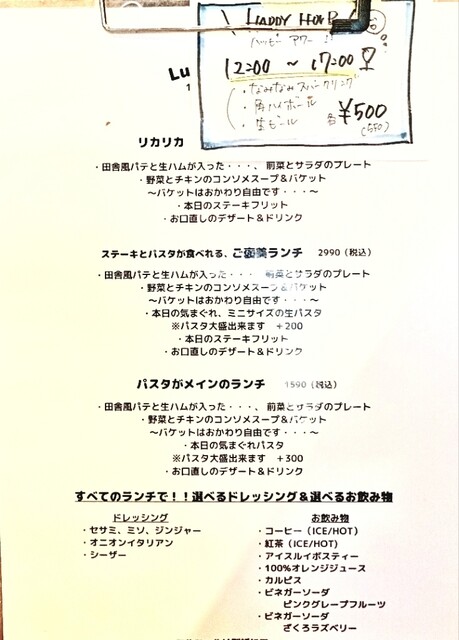 HAPPY HOUR
ハッピー アワー !!
12:00 ～ 17:00
・なみなみスパークリング
・角ハイボール
・生ビール 各 ¥500
(550)
Lu
リカリカ
・田舎風パテと生ハムが入った・・・、前菜とサラダのプレート
・野菜とチキンのコンソメスープ＆バケット
～バケットはおかわり自由です・・・～
・本日のステーキフリット
・お口直しのデザート＆ドリンク
ステーキとパスタが食べれる、ご褒美ランチ 2990（税込）
・田舎風パテと生ハムが入った・・・ 前菜とサラダのプレート
・野菜とチキンのコンソメスープ＆バケット
～バケットはおかわり自由です・・・～
・本日の気まぐれ、ミニサイズの生パスタ
※パスタ大盛出来ます ＋200
・本日のステーキフリット
・お口直しのデザート＆ドリンク
パスタがメインのランチ 1590（税込）
・田舎風パテと生ハムが入った・・・、前菜とサラダのプレート
・野菜とチキンのコンソメスープ＆バケット
～バケットはおかわり自由です・・・～
・本日の気まぐれパスタ
※パスタ大盛出来ます ＋300
・お口直しのデザート＆ドリンク
すべてのランチで！！選べるドレッシング＆選べるお飲み物
ドレッシング
・セサミ、ミソ、ジンジャー
・オニオンイタリアン
・シーザー
お飲み物
・コーヒー（ICE/HOT）
・紅茶（ICE/HOT）
・アイスルイボスティー
・100%オレンジジュース
・カルピス
・ビネガーソーダ
ピンクグレープフルーツ
・ビネガーソーダ
ざくろラズベリー